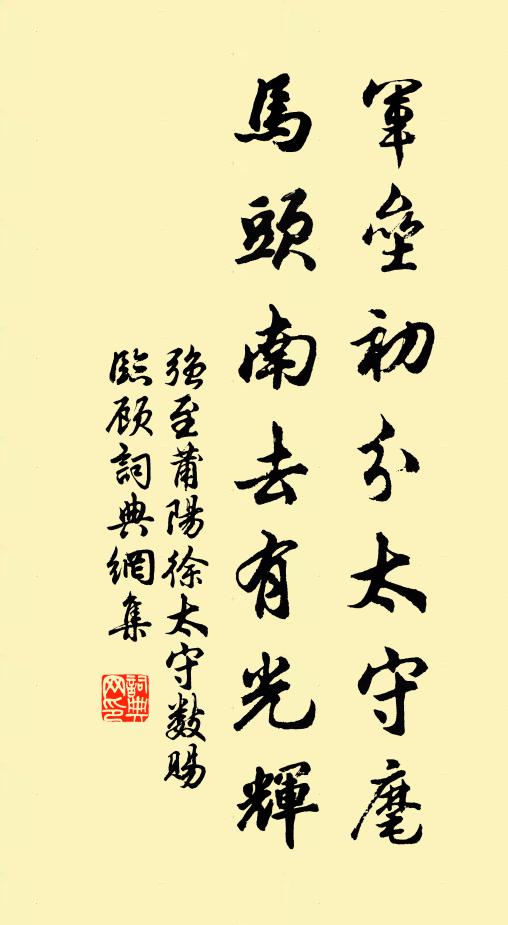 軍壘初分太守麾
馬頭南去有光輝
強至莆陽徐太守數賜
臨顧詞典網集
詞典网印